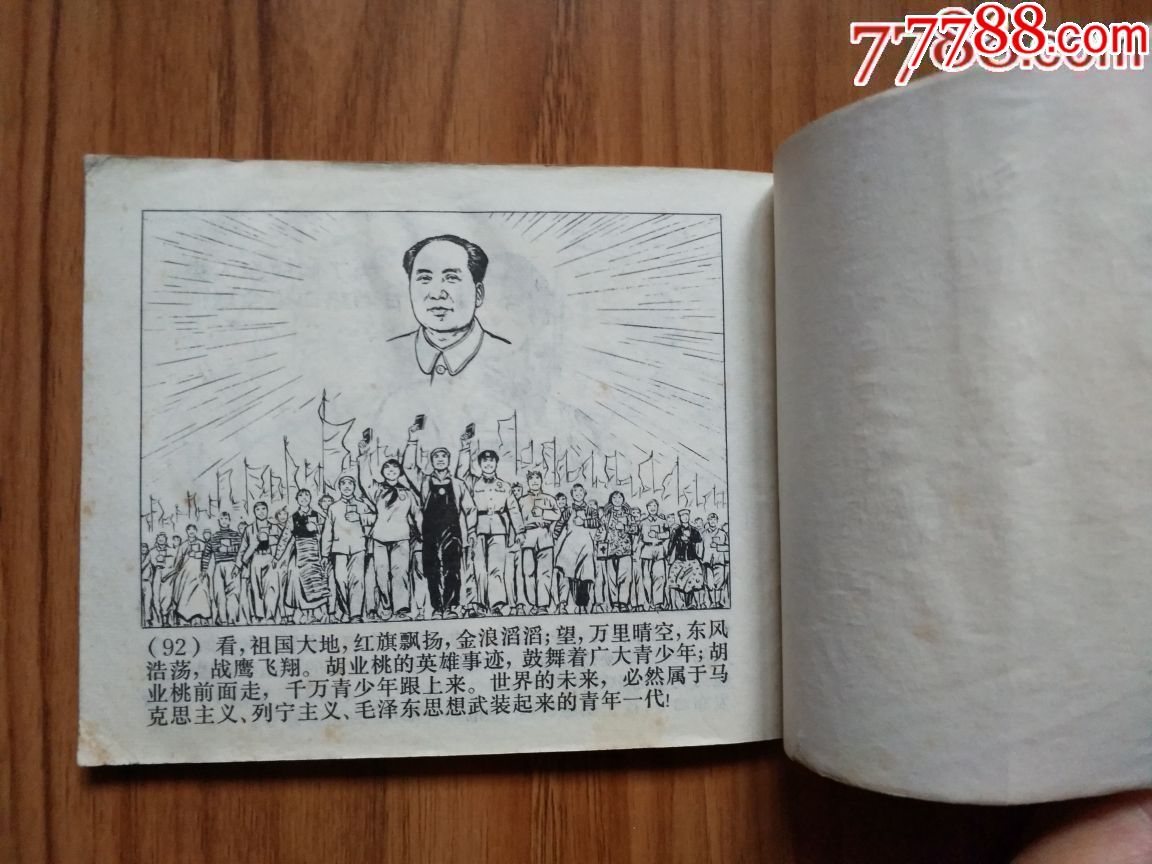 77788.com
(92) 看，祖国大地，红旗飘扬，金浪滔滔；望，万里晴空，东风
浩荡，战鹰飞翔。胡业桃的英雄事迹，鼓舞着广大青少年；胡
业桃前面走，千万青少年跟上来。世界的未来，必然属于马
克思主义、列宁主义、毛泽东思想武装起来的青年一代！